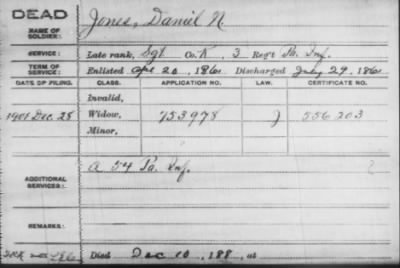 DEAD
NAME OF SOLDIER: Jones, Daniel N
SERVICE: Late rank, Sgt Co. K, 3 Reg't Pa. Inf.
TERM OF SERVICE: Enlisted Apr 20, 1861 Discharged July 29, 1861
DATE OF FILING. CLASS. APPLICATION NO. LAW. CERTIFICATE NO.
Invalid,
1901 Dec. 28 Widow, 753978 J 556203
Minor,
ADDITIONAL SERVICES: A 54 Pa. Inf.
REMARKS:
Died Dec 10, 188 , at